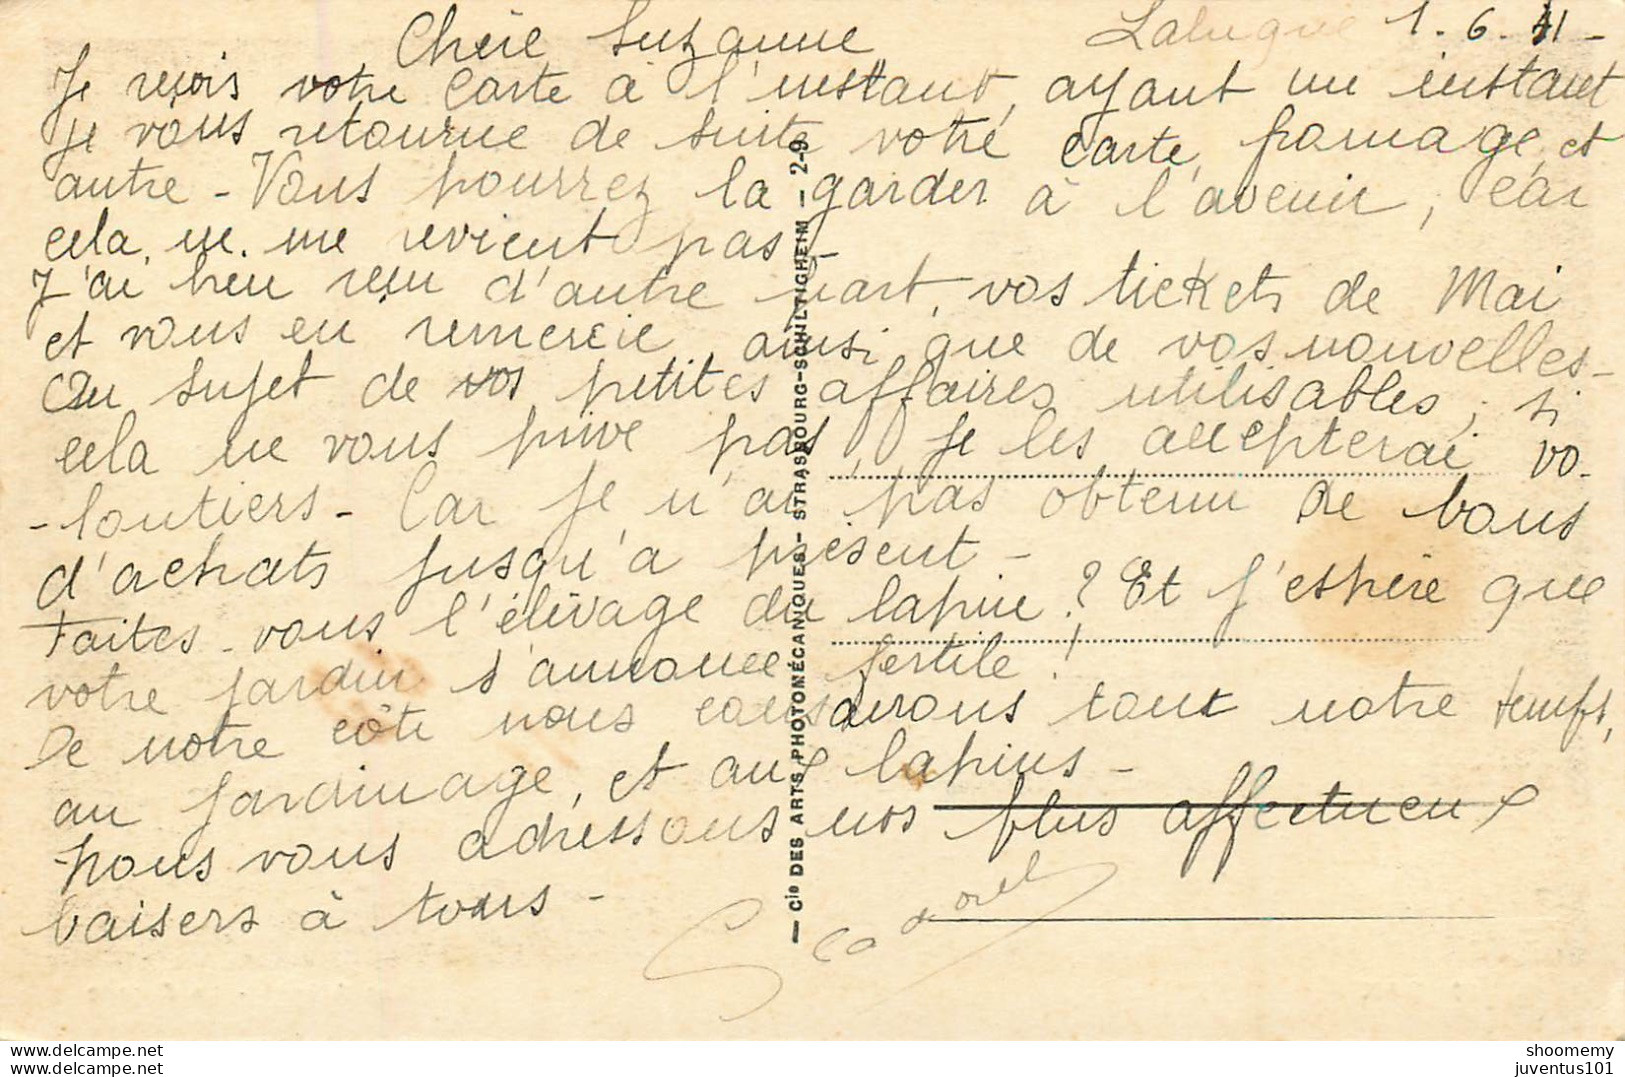 Chère Suzanne Laluque 1.6.41-
Je reçois votre carte à l'instant, ayant un instant
je vous retourne de suite votre carte, pour age, et
autre - Vous pourrez la garder à l'avenir, car
cela, ne. me revient pas -
J'ai bien reçu d'autre part, vos tickets de Mai
et vous en remercie, ainsi que de vos nouvelles -
Au sujet de vos petites affaires utilisables, si
cela ne vous prive pas, je les accepterai vo-
-lontiers - Car je n'ai pas obtenu de bons
d'achats jusqu'à présent -
Faites-vous l'élévage du lapin? Et j'espère que
votre jardin s'annonce fertile!
De notre côté nous consacrons tout notre temps,
au jardinage, et aux lapins -
Nous vous adressons nos plus affectueux
baisers à tous -
— Cie DES ARTS PHOTOMÉCANIQUES - STRASBOURG-SCHILTIGHEIM — 2-9
shoomemy
https://www.delcampe.net/en_US/collectibles/
juventus101